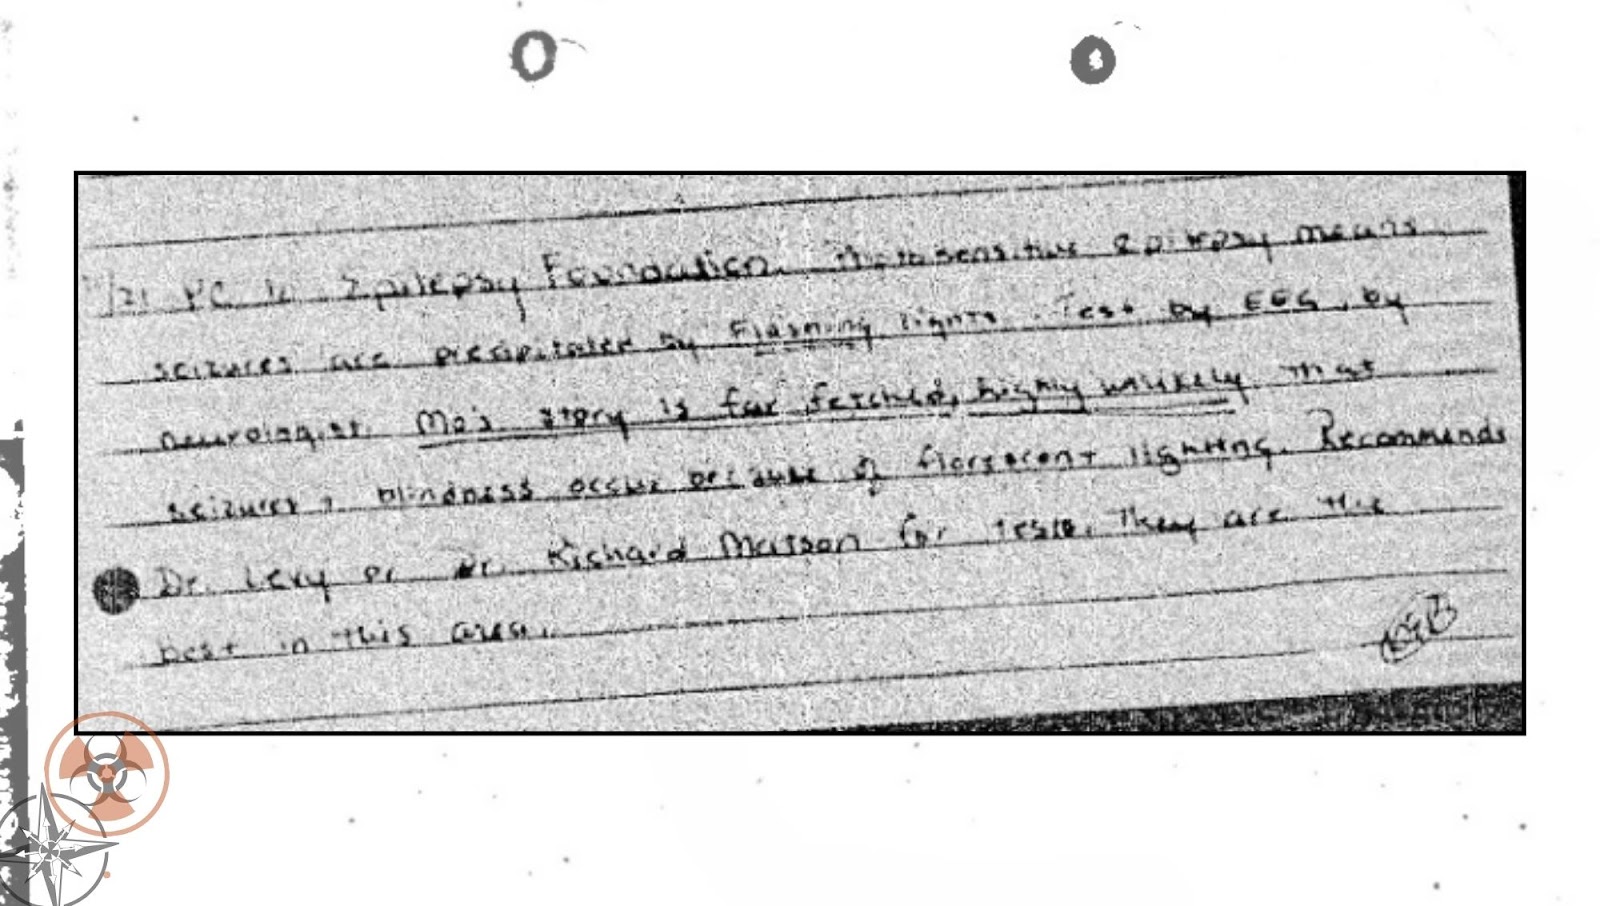 /21 PC to Epilepsy Foundation. Photosensitive epilepsy means
seizures are precipitated by flashing lights. Test by EEG, by
neurologist. Mo's story is far fetched, highly unlikely that
seizures, blindness occur because of florescent lighting. Recommends
Dr. Levy or Dr. Richard Mattson for tests. They are the
best in this area.